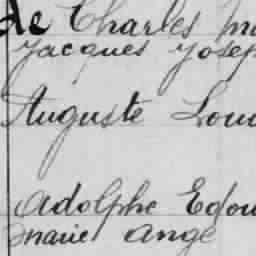 de Charles
Jacques Josep
Auguste Lou
Adolphe Edou
marie ange